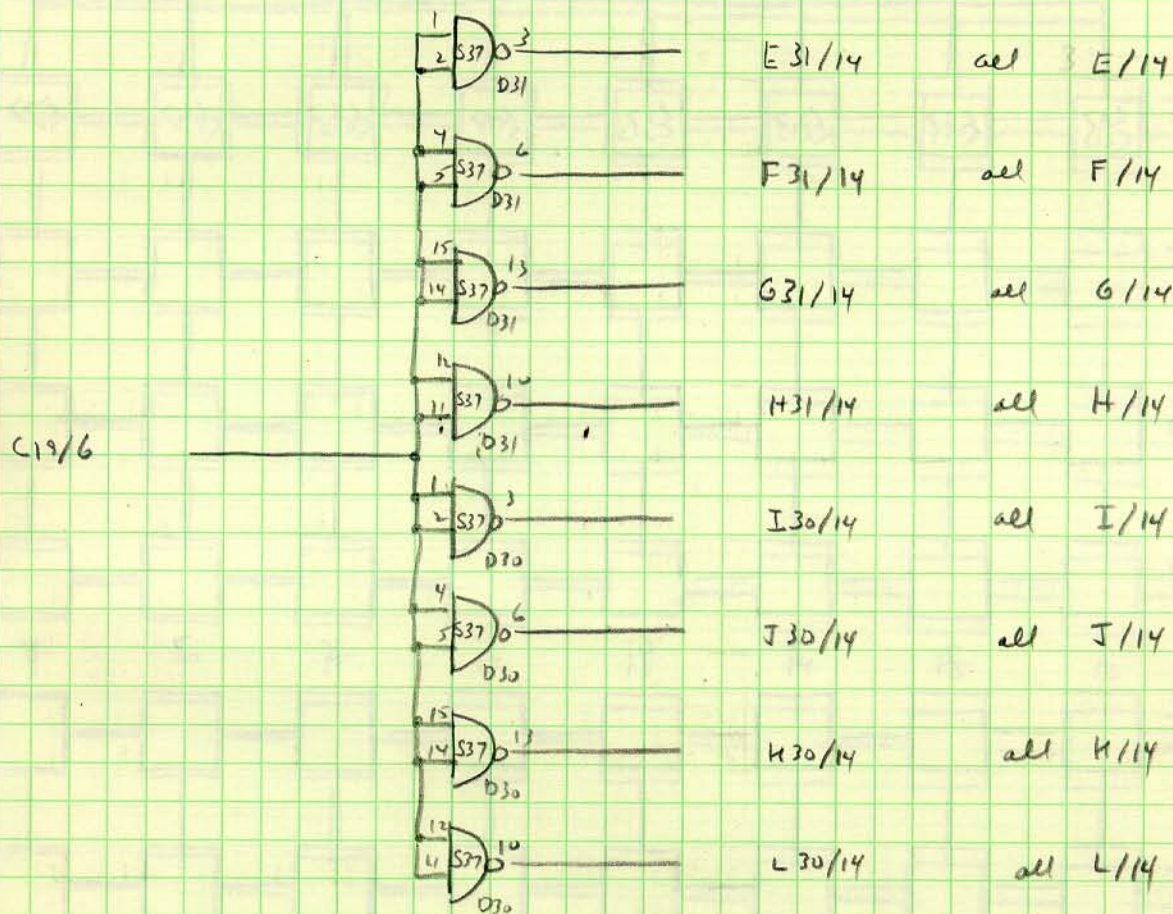 1 2 S37 3 D31 E31/14 all E/14
4 5 S37 6 D31 F31/14 all F/14
15 14 S37 13 D31 G31/14 all G/14
12 11 S37 10 D31 H31/14 all H/14
C19/6
1 2 S37 3 D30 I30/14 all I/14
4 5 S37 6 D30 J30/14 all J/14
15 14 S37 13 D30 H30/14 all H/14
12 11 S37 10 D30 L30/14 all L/14